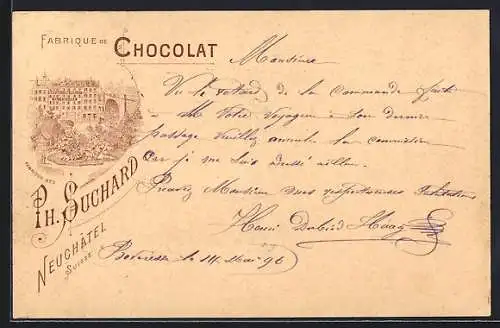 FABRIQUE DE CHOCOLAT
PH. SUCHARD
NEUCHÂTEL
SUISSE
Monsieur
Vu le retard de la commande faite
à Mr Votre Voyageur à son dernier
passage veuillez annuler la commission
Car je me suis adressé ailleurs.
Recevez Monsieur mes respectueuses Salutations
Henri Haag
le 14 Mai 96